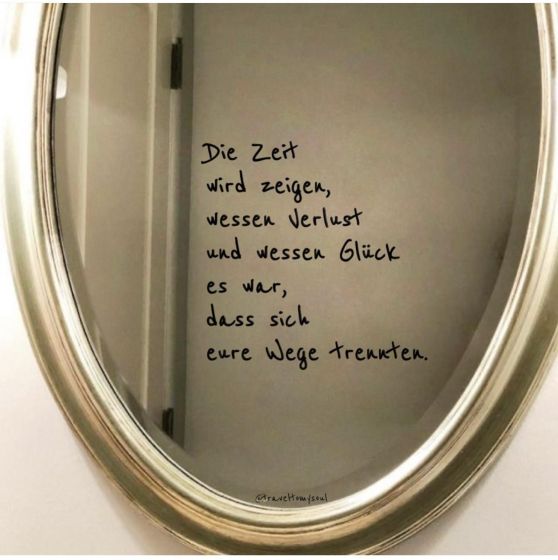 Die Zeit
wird zeigen,
wessen Verlust
und wessen Glück
es war,
dass sich
eure Wege trennten.
@traveltomysoul